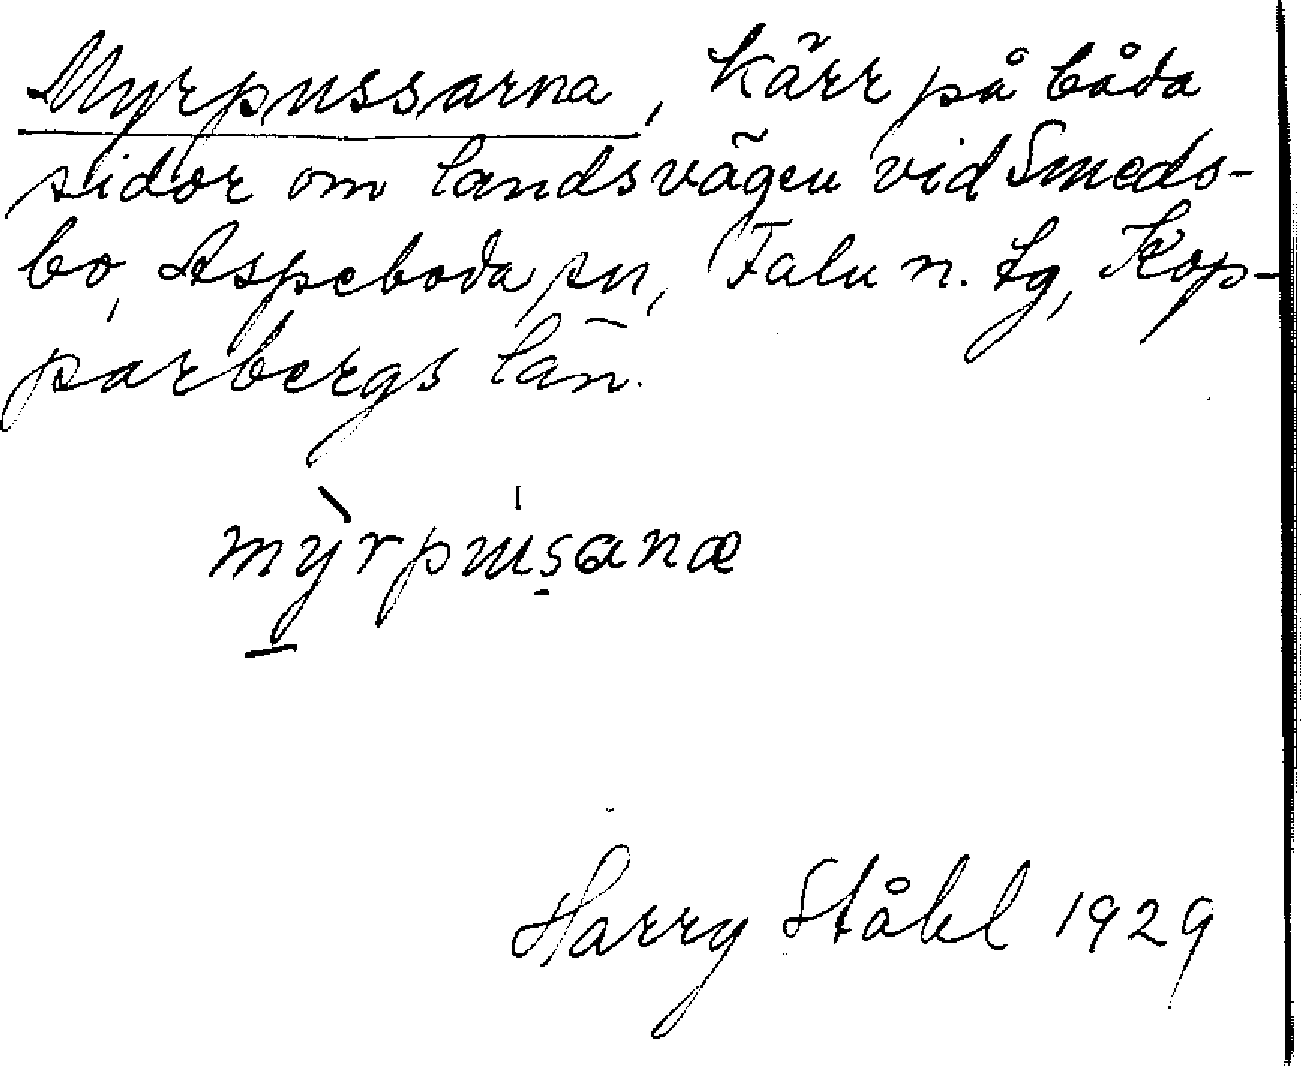 Myrpussarna, kärr på båda
sidor om landsvägen vid Smeds-
bo, Aspeboda sn, Falu n. tg, Kop-
parbergs län.
mỳrpusanæ
Harry Ståhl 1929